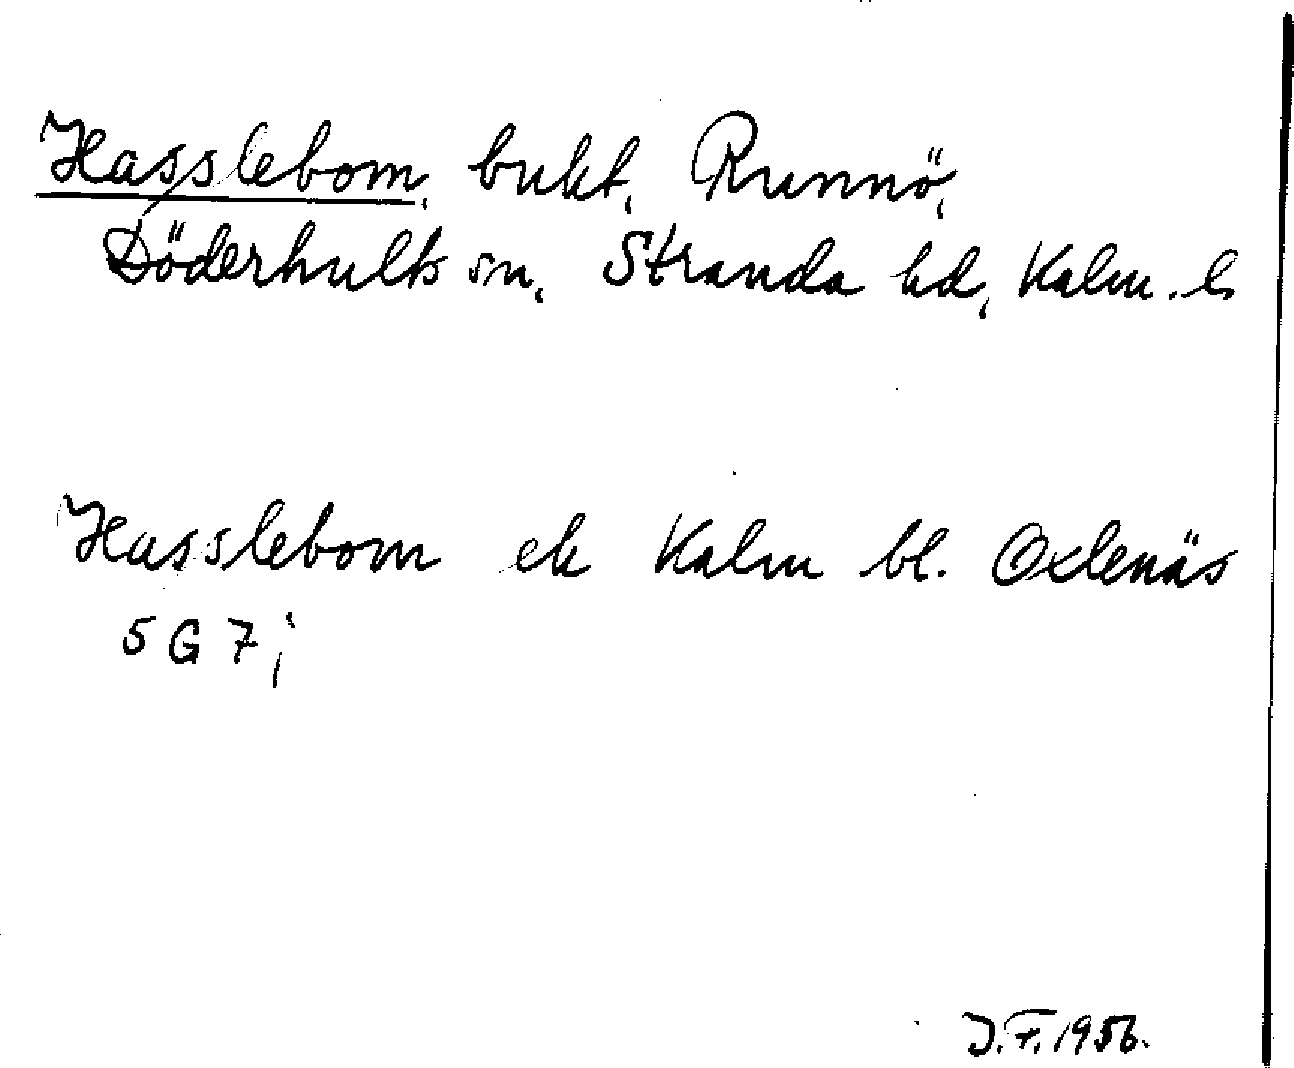 Hasslebom, bukt, Runnö,
Döderhults sn, Stranda hd, Kalm. l.
Hasslebom ek Kalm bl. Oxlenäs
5 G 7 j
J.F. 1956.